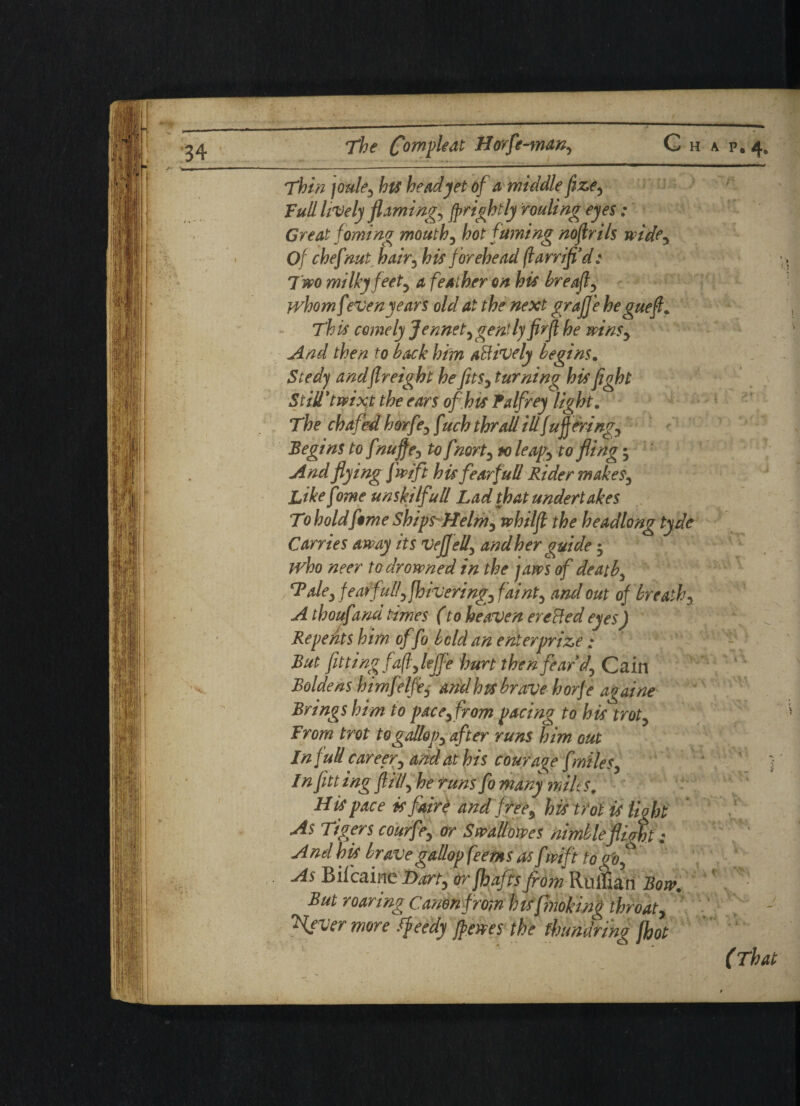 34 The Compleat Horse-man, CHAP. 4.
Thin joule, his head yet of a middle size,
Full lively flaming, sprightly rouling eyes:
Great foming mouth, hot fuming nostrils wide,
Of chesnut hair, his forehead starrifi'd:
Two milky feet, a feather on his breast,
Whom seven years old at the next grasse he guest.
This comely Jennet, gently first he wins,
And then to back him actively begins.
Stedy and streight he sits, turning his sight
Still 'twixt the ears of his Palfrey light.
The chafed horse, such thrall ill suffering,
Begins to snuffe, to snort, to leap, to fling;
And flying swift his fearfull Rider makes,
Like some unskilfull Lad that undertakes
To hold some Ships-Helm, whilst the headlong tyde
Carries away its vessell, and her guide;
Who neer to drowned in the jaws of death,
Pale, fearfull, shivering, faint, and out of breath,
A thousand times (to heaven erected eyes)
Repents him of so bold an enterprize:
But sitting fast, lesse hurt then fear'd, Cain
Boldens himselfe, and his brave horse againe
Brings him to pace, from pacing to his trot,
From trot to gallop, after runs him out
In full career, and at his courage smiles,
In sitting still, he runs so many miles.
His pace is faire and free, his trot is light
As Tigers course, or Swallowes nimble flight:
And his brave gallop seems as swift to go,
As Biscaine Dart, or shafts from Russian Bow.
But roaring Canon from his smoking throat,
Never more speedy spewes the thundring shot
(That